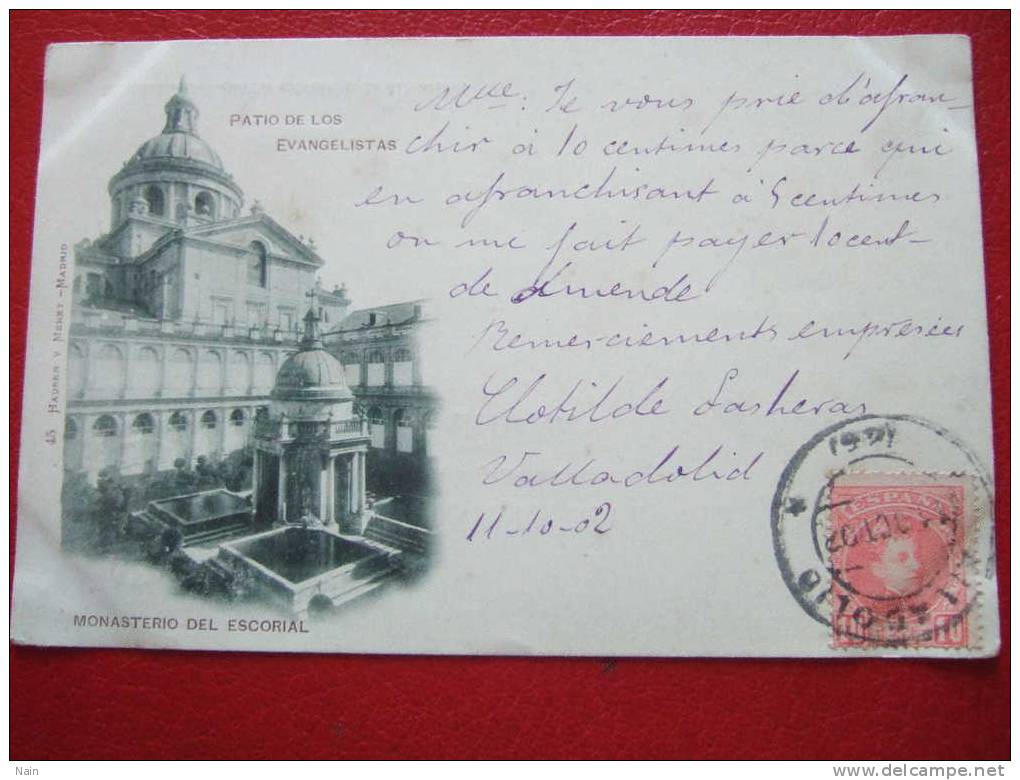 PATIO DE LOS
EVANGELISTAS
Mlle. Je vous prie d'afran-
chir à 10 centimes parce qui
en afranchisant à 5 centimes
on me fait payer 10 cent-
de amende
Remerciements empresées
Clotilde Lasheras
Valladolid
11-10-02
45 HAUSER Y MENET -MADRID
MONASTERIO DEL ESCORIAL
ESPAÑA
OCT 02
10
Nain
www.delcampe.net